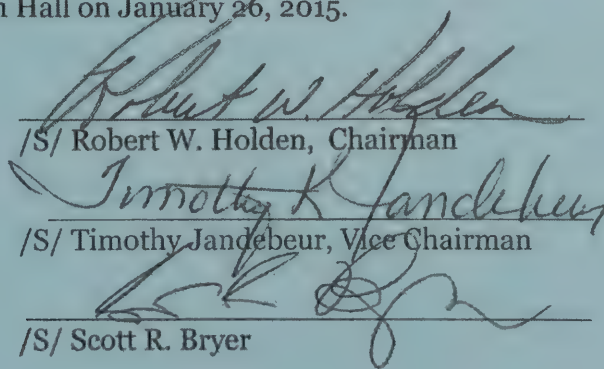 n Hall on January 26, 2015.
Robert W. Holden
/S/ Robert W. Holden, Chairman
Timothy K Jandebeur
/S/ Timothy Jandebeur, Vice Chairman
/S/ Scott R. Bryer